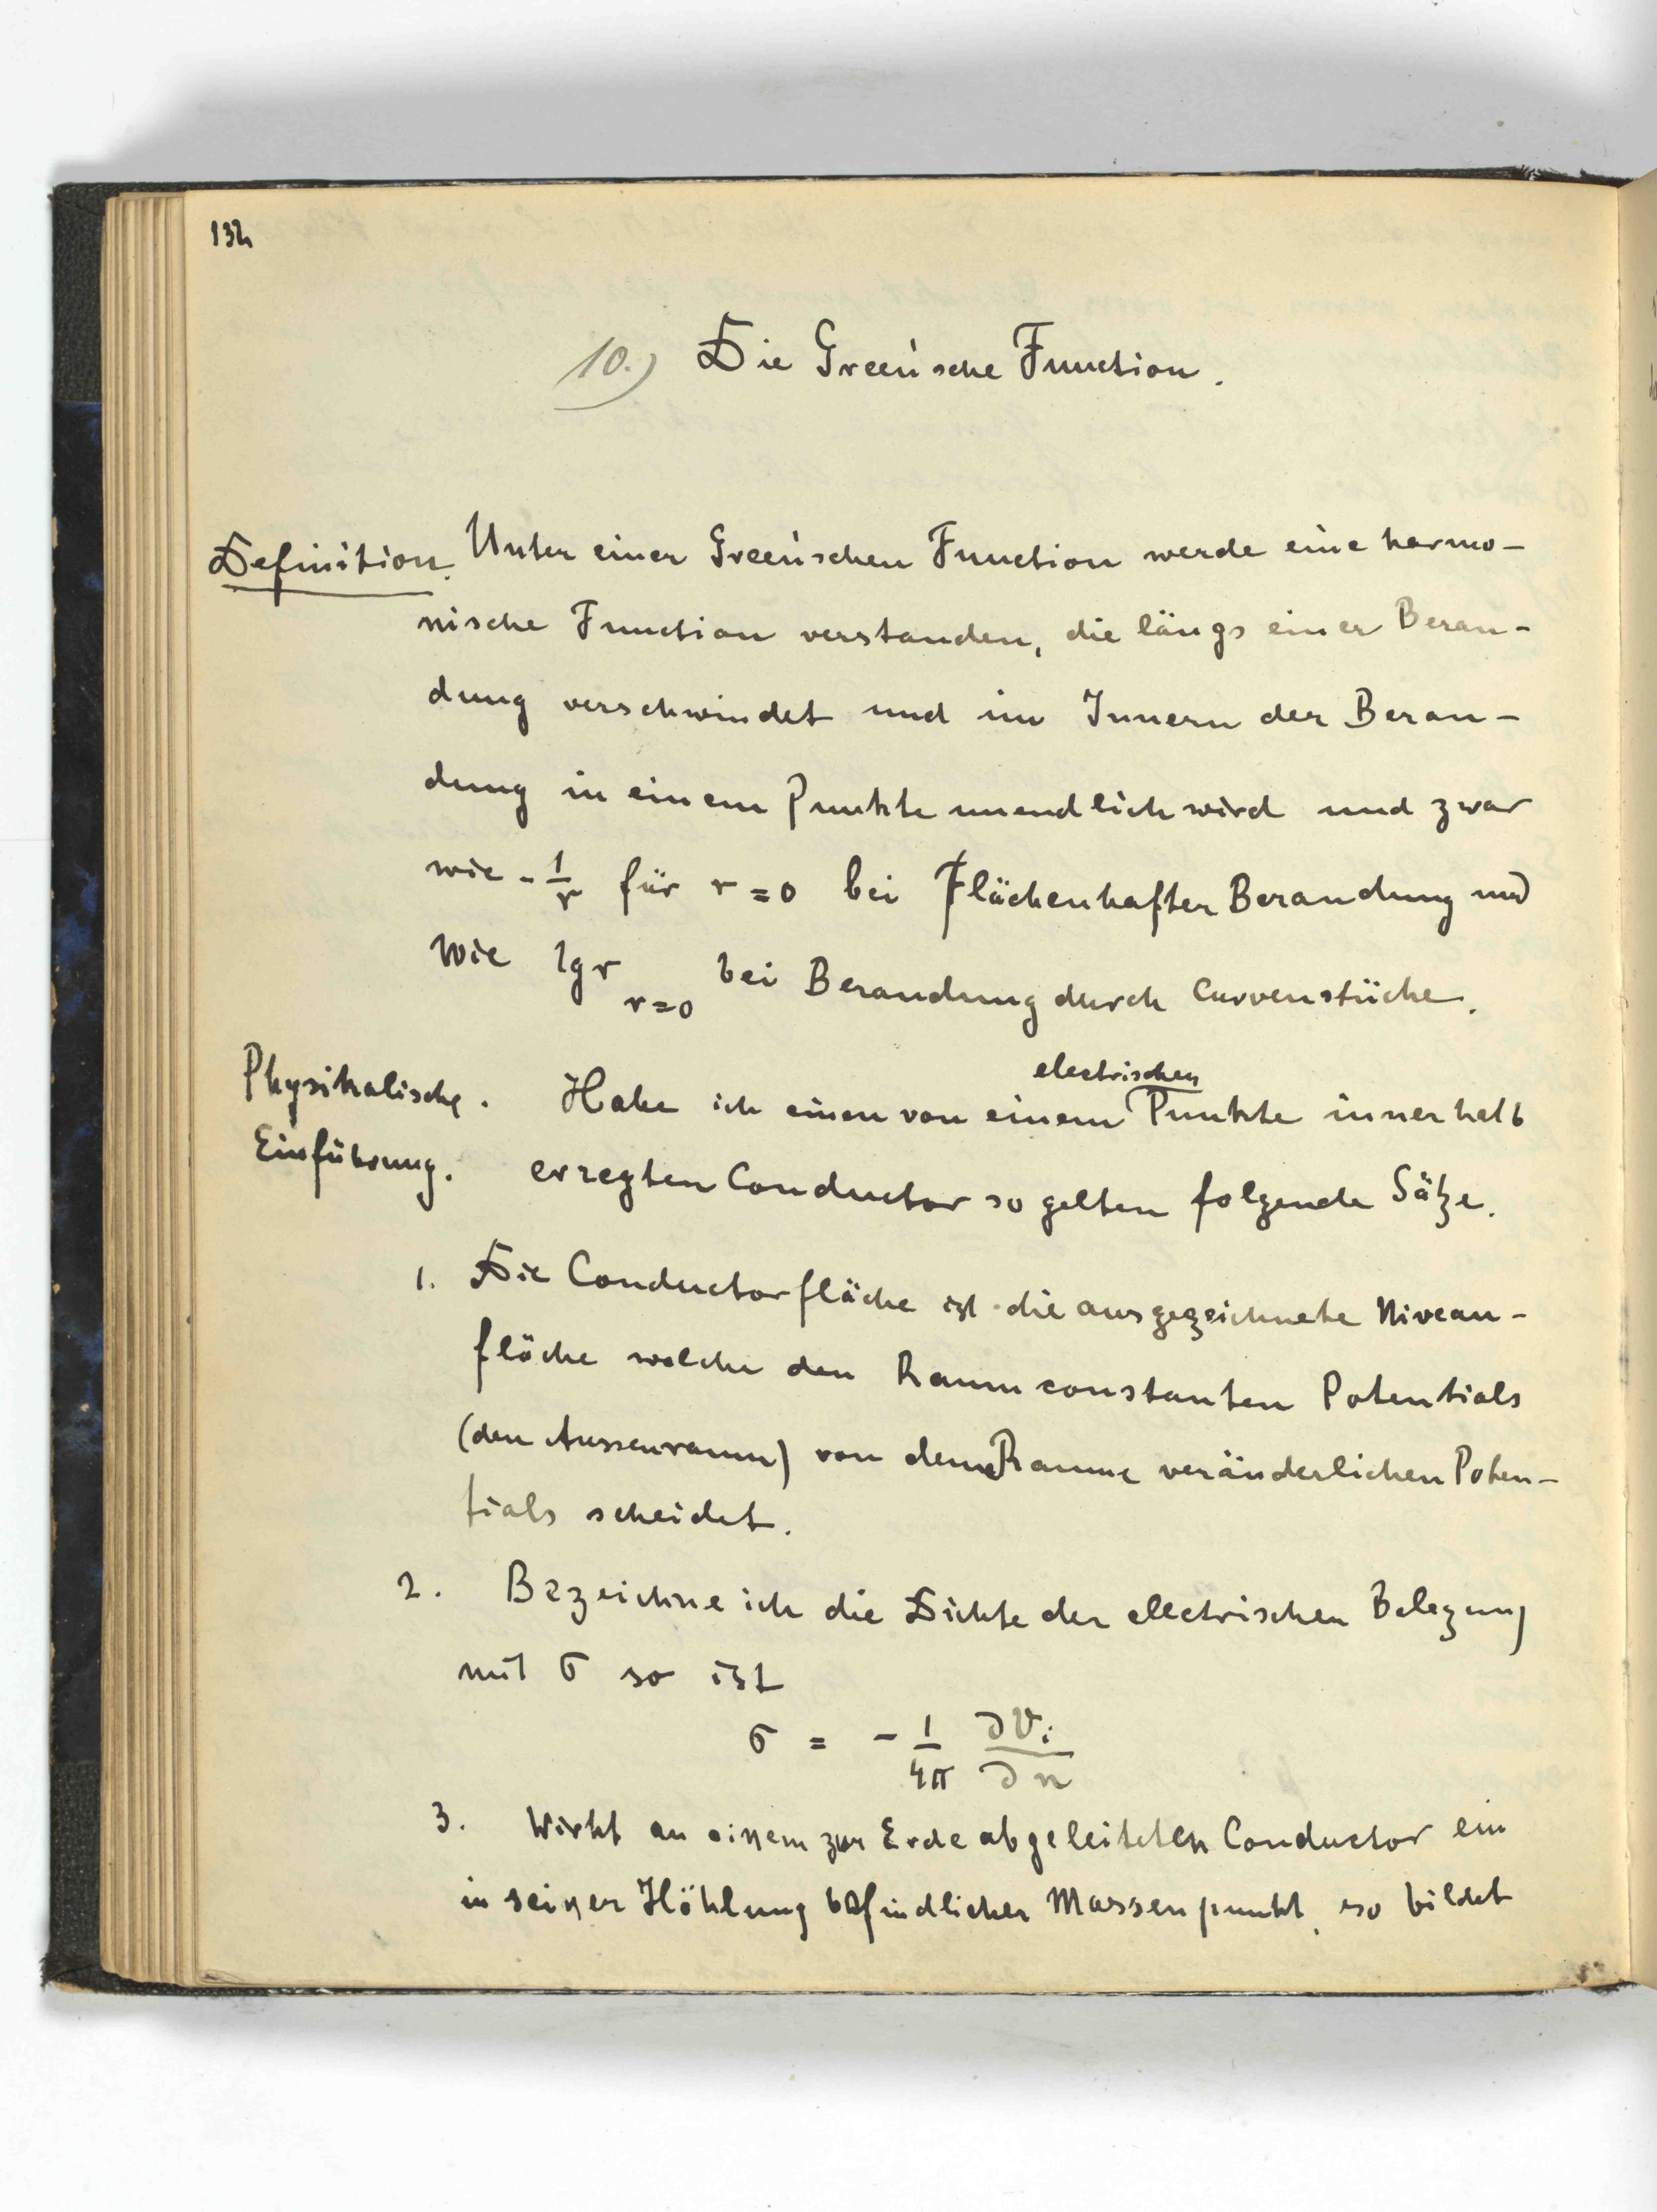 132
10.) Die Green'sche Function.
Definition. Unter einer Green'schen Function werde eine harmo-
nische Function verstanden, die längs einer Beran-
dung verschwindet und im Innern der Beran-
dung in einem Punkte unendlich wird und zwar
wie - 1/r für r = 0 bei Flächenhafter Berandung und
wie lg r r=0 bei Berandung durch Curvenstücke.
Physikalische Einführung.
electrischen
Habe ich einen von einem Punkte innerhalb
erregten Conductor so gelten folgende Sätze.
1. Die Conductorfläche ist die ausgezeichnete Niveau-
fläche welche den Raum constanten Potentials
(den Aussenraum) von dem Raume veränderlichen Poten-
tials scheidet.
2. Bezeichne ich die Dichte der electrischen Belegung
mit σ so ist
σ = - 1/4π ∂V_i/∂n
3. Wirkt an einem zur Erde abgeleiteten Conductor ein
in seiner Höhlung befindlicher Massenpunkt, so bildet